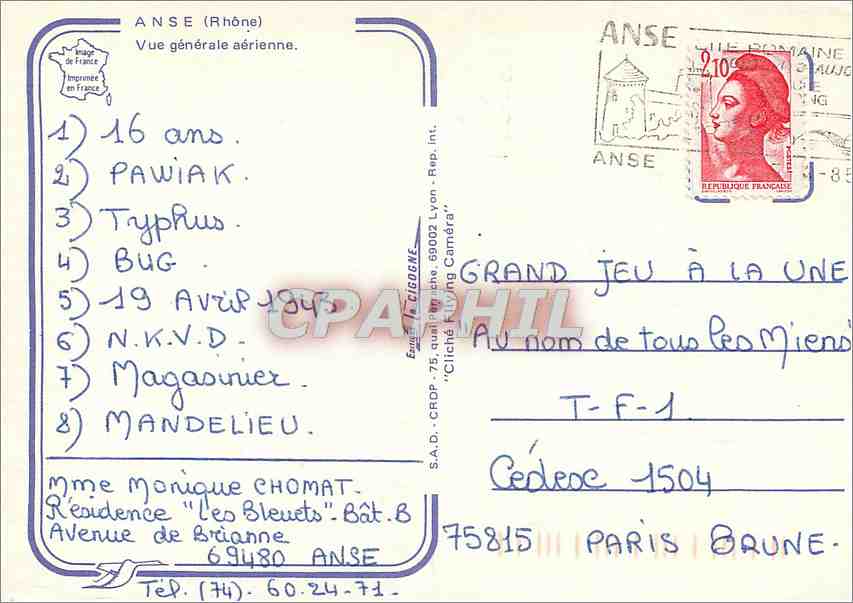 ANSE (Rhône)
Vue générale aérienne.
Image
de France
Imprimée
en France
1) 16 ans.
2) PAWIAK.
3) Typhus.
4) BUG.
5) 19 Avril 1943
6) N.K.V.D.
7) Magasinier.
8) MANDELIEU.
Mme Monique CHOMAT.
Résidence "Les Bleuets". Bât. B
Avenue de Brianne
69480 ANSE
Tél. (74). 60.24-71-
S.A.D. - CRDP - 75, quai Perrache, 69002 Lyon - Rep. int.
"Cliché Fllying Caméra"
Editions la CIGOGNE
CPAPHIL
ANSE
CITE ROMAINE
ANSE
-85
2,10
POSTES
REPUBLIQUE FRANÇAISE
GRAND JEU À LA UNE
"Au nom de tous les Miens"
T-F-1
Cédesc 1504
75815 PARIS BRUNE.